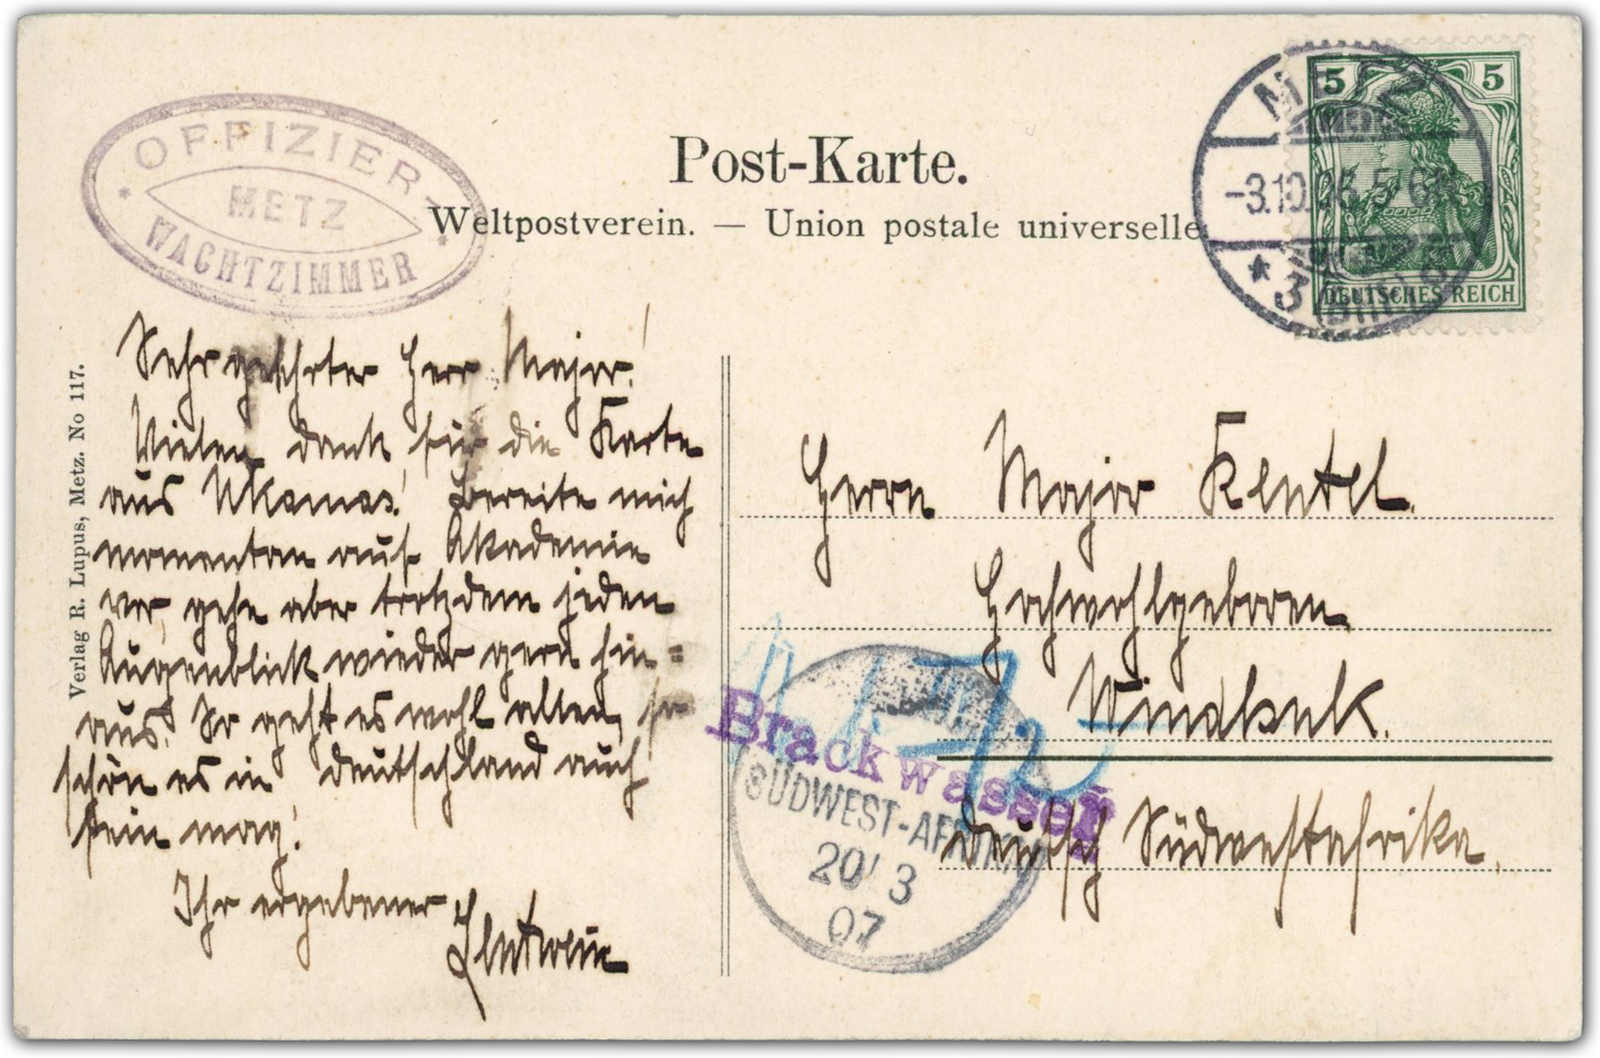 OFFIZIER-
METZ
WACHTZIMMER
Post-Karte.
Weltpostverein. — Union postale universelle
METZ
-3.10.06.5-6
* 3
5 5
DEUTSCHES REICH
Verlag R. Lupus, Metz. No 117.
Sehr geehrter Herr Major!
Vielen dank für die Karte
aus Ukamas! Bereite mich
momentan auf Akademie
vor, gehe aber trotzdem jeden
Augenblick wieder gern hin=
aus! So geht es wohl allen, so
schön es in deutschland auch
sein mag!
Ihr ergebener
Herrn Major
Hochwohlgeboren
Windhuk.
deutsch Südwestafrika.
Brackwasser
SÜDWEST-AFRIKA
20/3
07